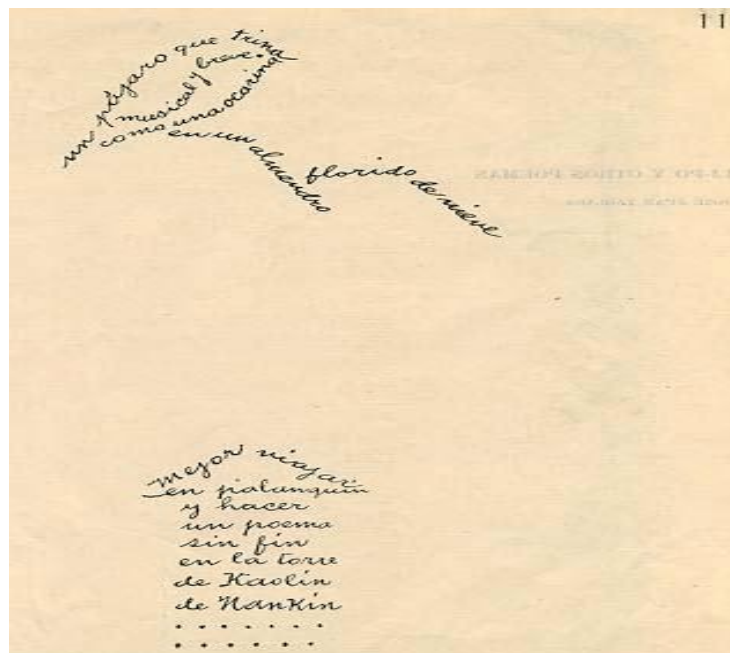 11
un pájaro que trina
musical y breve
como una ocarina
en un almendro
florido de nieve
mejor viajar
en palanquin
y hacer
un poema
sin fin
en la torre
de Kaolín
de Nankín
. . . . . . .
. . . . . .